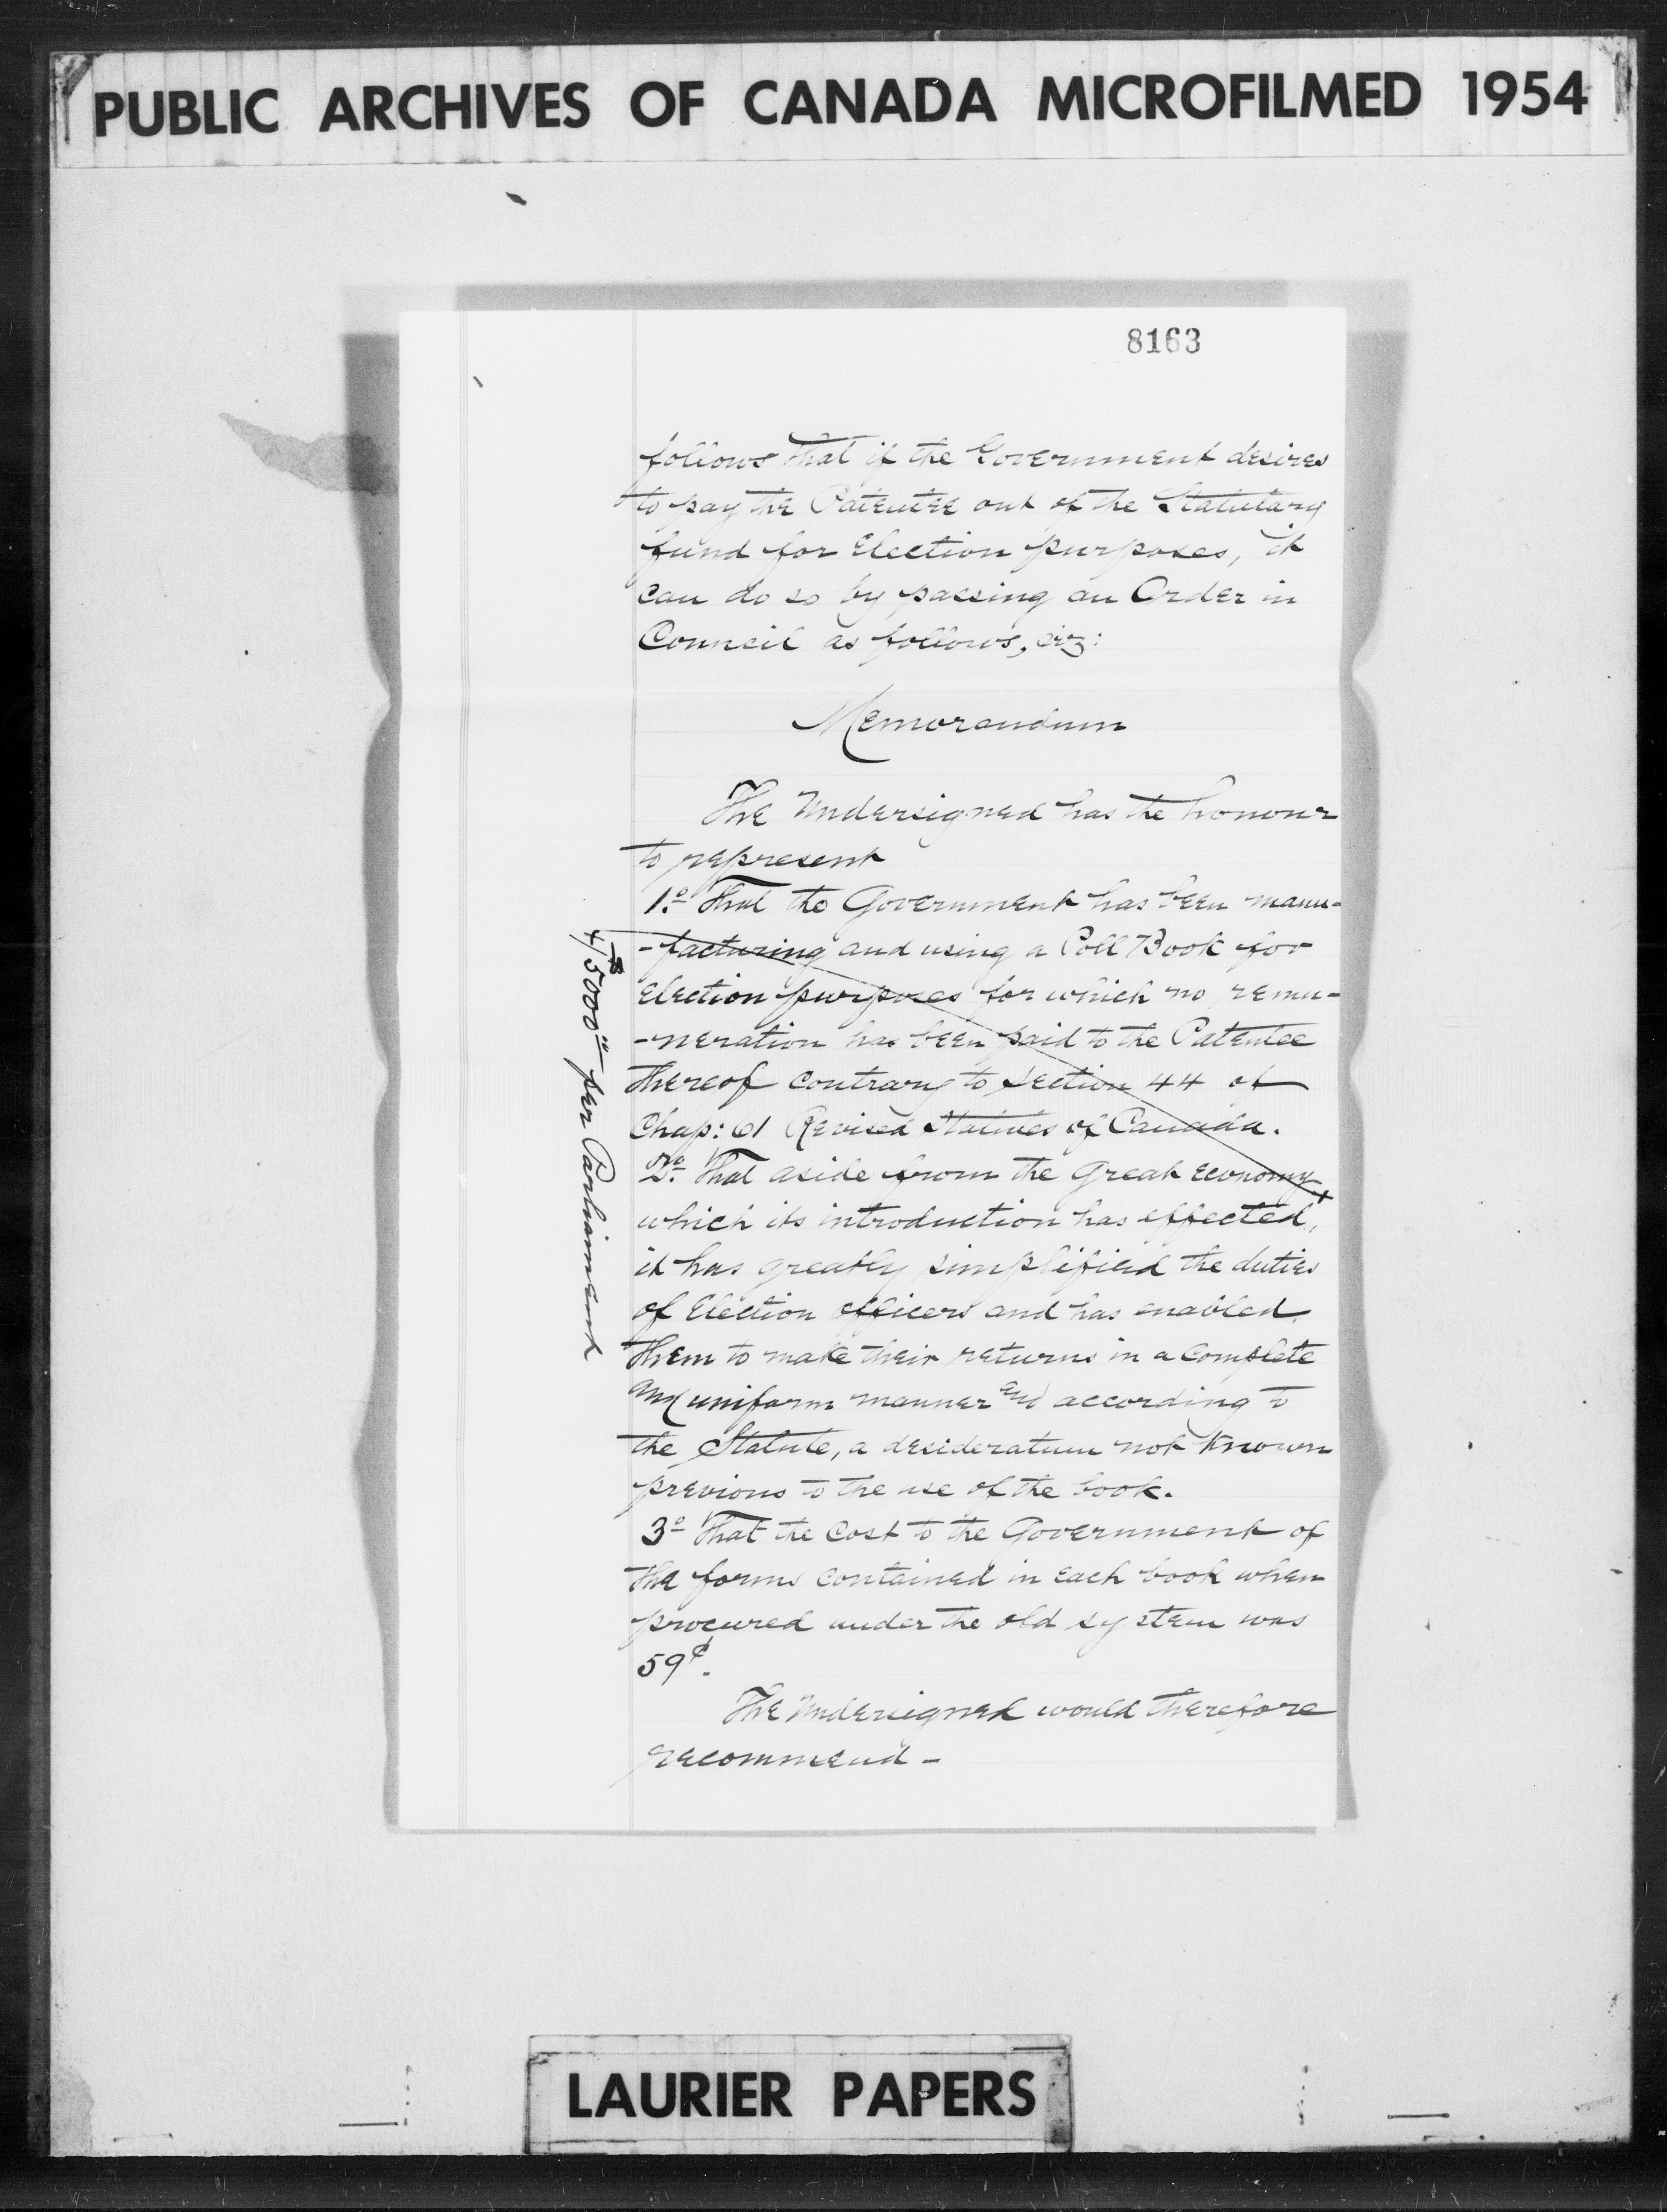 PUBLIC ARCHIVES OF CANADA MICROFILMED 1954
8163
follows that if the Government desires
to pay the Patentee out of the Statutary
fund for Election purposes, it
can do so by passing an Order in
Council as follows, viz:
Memorandum
The Undersigned has the honour
to represent
1.º That the Government has been manu-
-facturing and using a Poll Book for
Election purposes for which no remu-
-neration has been paid to the Patentee
thereof contrary to Section 44 of
Chap: 61 Revised Statutes of Canada.
2.º That aside from the great economy x
which its introduction has effected,
it has greatly simplified the duties
of Election officers and has enabled
them to make their returns in a complete
uniform manner and according to
the Statute, a desideratum not known
previous to the use of the book.
3º That the cost to the Government of
the forms contained in each book when
procured under the old system was
59¢.
The Undersigned would therefore
recommend -
x $5000 per Parliament
LAURIER PAPERS